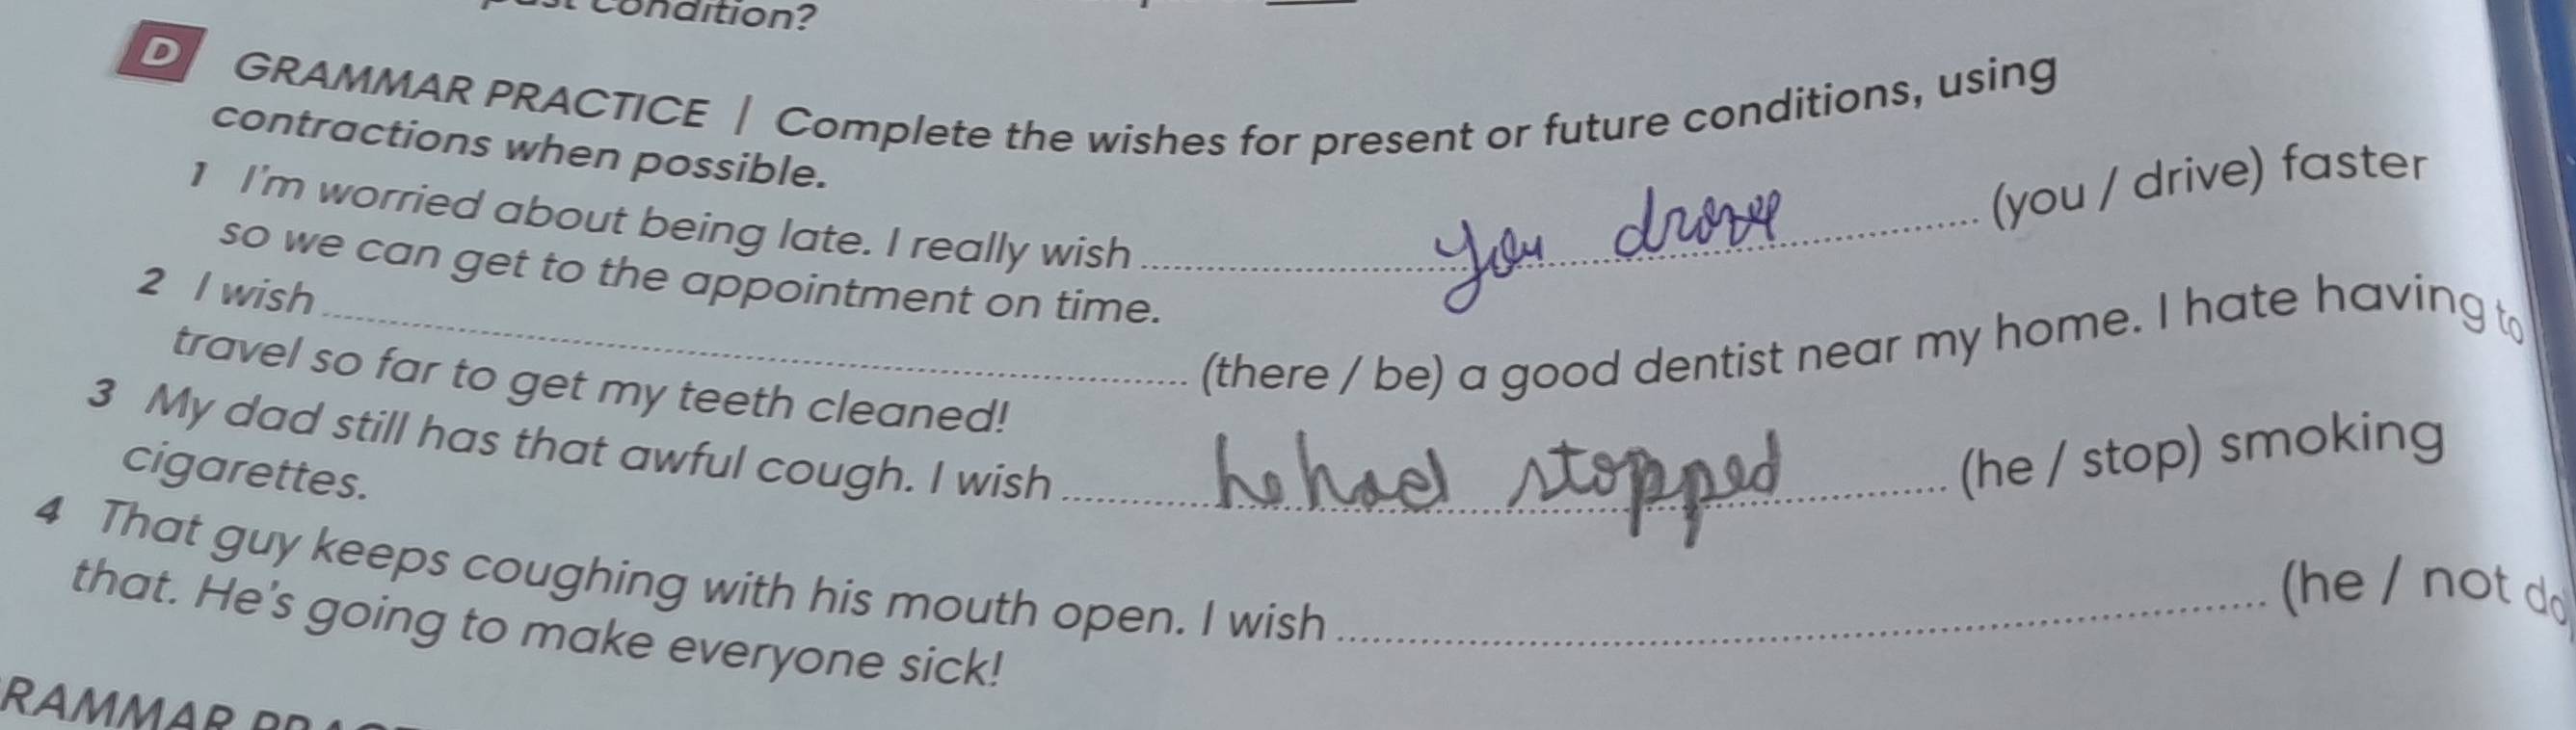 condition?
D GRAMMAR PRACTICE | Complete the wishes for present or future conditions, using
contractions when possible.
1 I'm worried about being late. I really wish you drove (you / drive) faster
so we can get to the appointment on time.
2 I wish (there / be) a good dentist near my home. I hate having to
travel so far to get my teeth cleaned!
3 My dad still has that awful cough. I wish he had stopped (he / stop) smoking
cigarettes.
4 That guy keeps coughing with his mouth open. I wish (he / not do
that. He's going to make everyone sick!